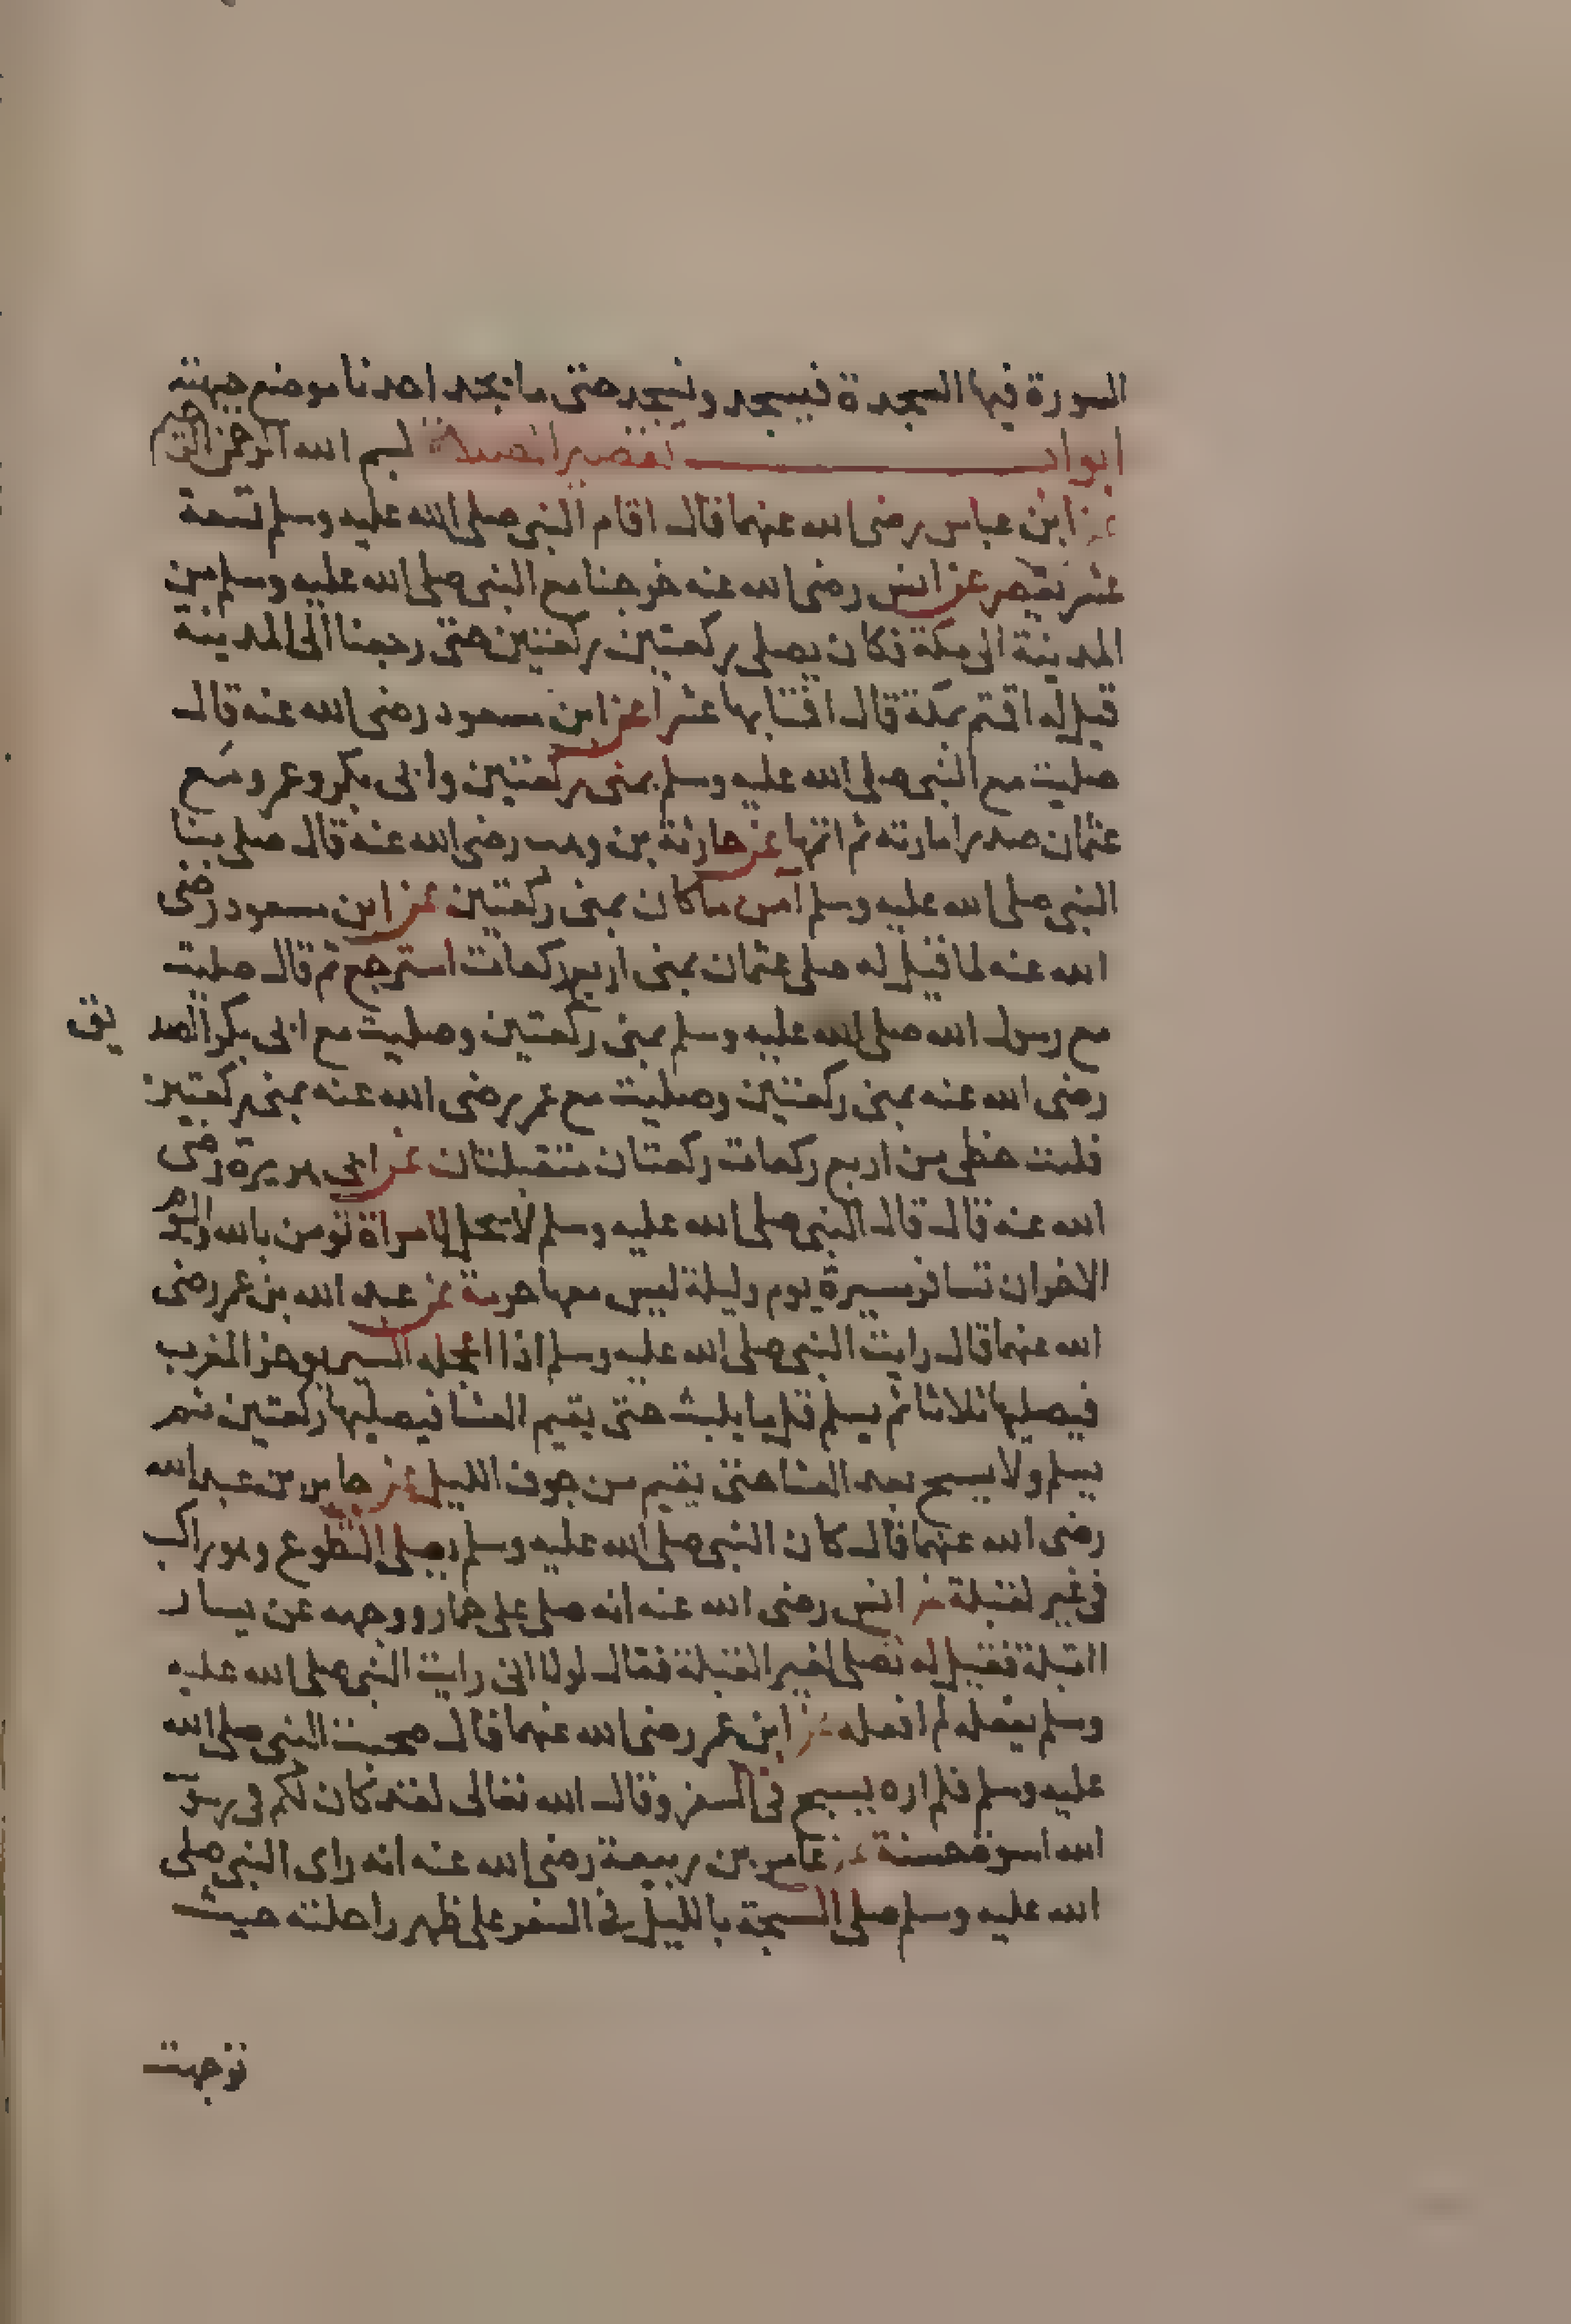 السورة فيها السجدة فيسجد ونسجد حتى ما يجد احدنا موضع جبهته
ابواب تقصير الصلاة بسم الله الرحمن الرحيم
عن ابن عباس رضى الله عنهما قال اقام النبى صلى الله عليه وسلم تسعة
عشر يقصر عن انس رضى الله عنه خرجنا مع النبى صلى الله عليه وسلم من
المدينة الى مكة فكان يصلى ركعتين ركعتين حتى رجعنا الى المدينة
قيل له اقمتم بمكة قال اقمنا بها عشرا عن ابن مسعود رضى الله عنه قال
صليت مع النبى صلى الله عليه وسلم بمنى ركعتين وابى بكر وعمر ومع
عثمان صدرا من امارته ثم اتمها عن حارثة بن وهب رضى الله عنه قال صلى بنا
النبى صلى الله عليه وسلم امن ما كان بمنى ركعتين عن ابن مسعود رضى
الله عنه لما قيل له صلى عثمان بمنى اربع ركعات استرجع ثم قال صليت
مع رسول الله صلى الله عليه وسلم بمنى ركعتين وصليت مع ابى بكر الصديق
رضى الله عنه بمنى ركعتين وصليت مع عمر رضى الله عنه بمنى ركعتين
فليت حظى من اربع ركعات ركعتان متقبلتان عن ابى هريرة رضى
الله عنه قال قال النبى صلى الله عليه وسلم لا يحل لامراة تومن بالله واليوم
الاخر ان تسافر مسيرة يوم وليلة ليس معها حرمة عن عبد الله بن عمر رضى
الله عنهما قال رايت النبى صلى الله عليه وسلم اذا اعجله السير يوخر المغرب
فيصليها ثلاثا ثم يسلم قلما يلبث حتى يقيم العشا فيصليها ركعتين ثم
يسلم ولا يسبح بعد العشا حتى يقيم من جوف الليل عن جابر بن عبد الله
رضى الله عنهما قال كان النبى صلى الله عليه وسلم يصلى التطوع وهو راكب
فى غير القبلة عن انس رضى الله عنه انه صلى على حمار ووجهه عن يسار
القبلة فقيل له تصلى لغير القبلة فقال لولا انى رايت النبى صلى الله عليه
وسلم يفعله لم افعله عن ابن عمر رضى الله عنهما قال صحبت النبى صلى الله
عليه وسلم فلم اره يسبح فى السفر وقال الله تعالى لقد كان لكم فى رسول
الله اسوة حسنة عن عامر بن ربيعة رضى الله عنه انه راى النبى صلى
الله عليه وسلم صلى السبحة بالليل فى السفر على ظهر راحلته حيث
توجهت